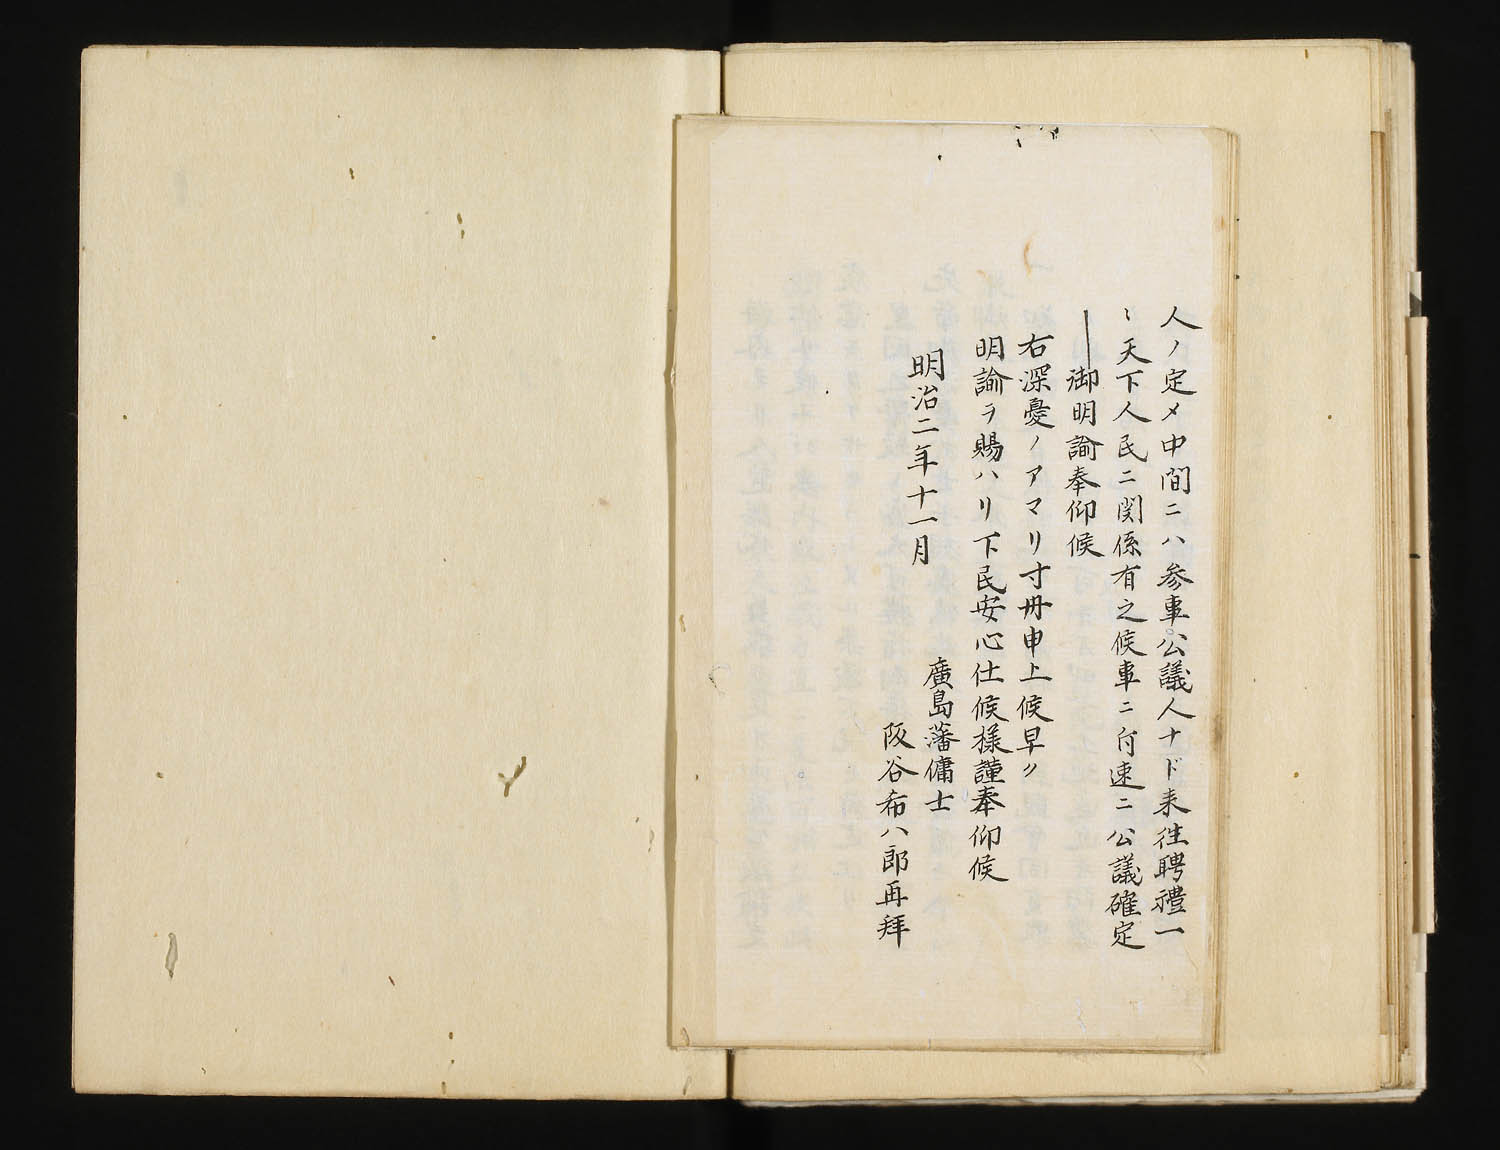 人ノ定メ中間ニハ参車公議人ナド来往聘禮一
々天下人民ニ関係有之候車ニ付速ニ公議確定
御明諭奉仰候
右深憂ノアマリ寸冊申上候早ク
明諭ヲ賜ハリ下民安心仕候様謹奉仰候
明治二年十一月
廣島藩傭士
阪谷希八郎再拜